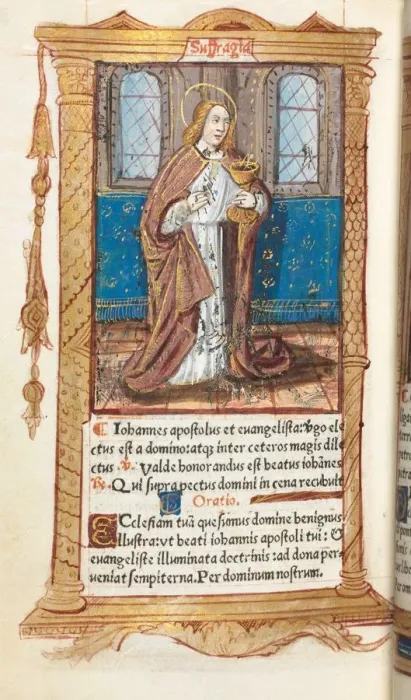 Suffragia
Iohannes apostolus et euangelista: v̾go ele
ctus est a domino: atqꝫ inter ceteros magis dile
ctus. ℣. Valde honorandus est beatus iohānes
℟. Qui supra pectus domini in cena recubuit
Oratio.
Ecclesiam tuā quesumus domine benignus
illustra: vt beati iohannis apostoli tui:
euangeliste illuminata doctrinis: ad dona per
ueniat sempiterna. Per dominum nostrum.